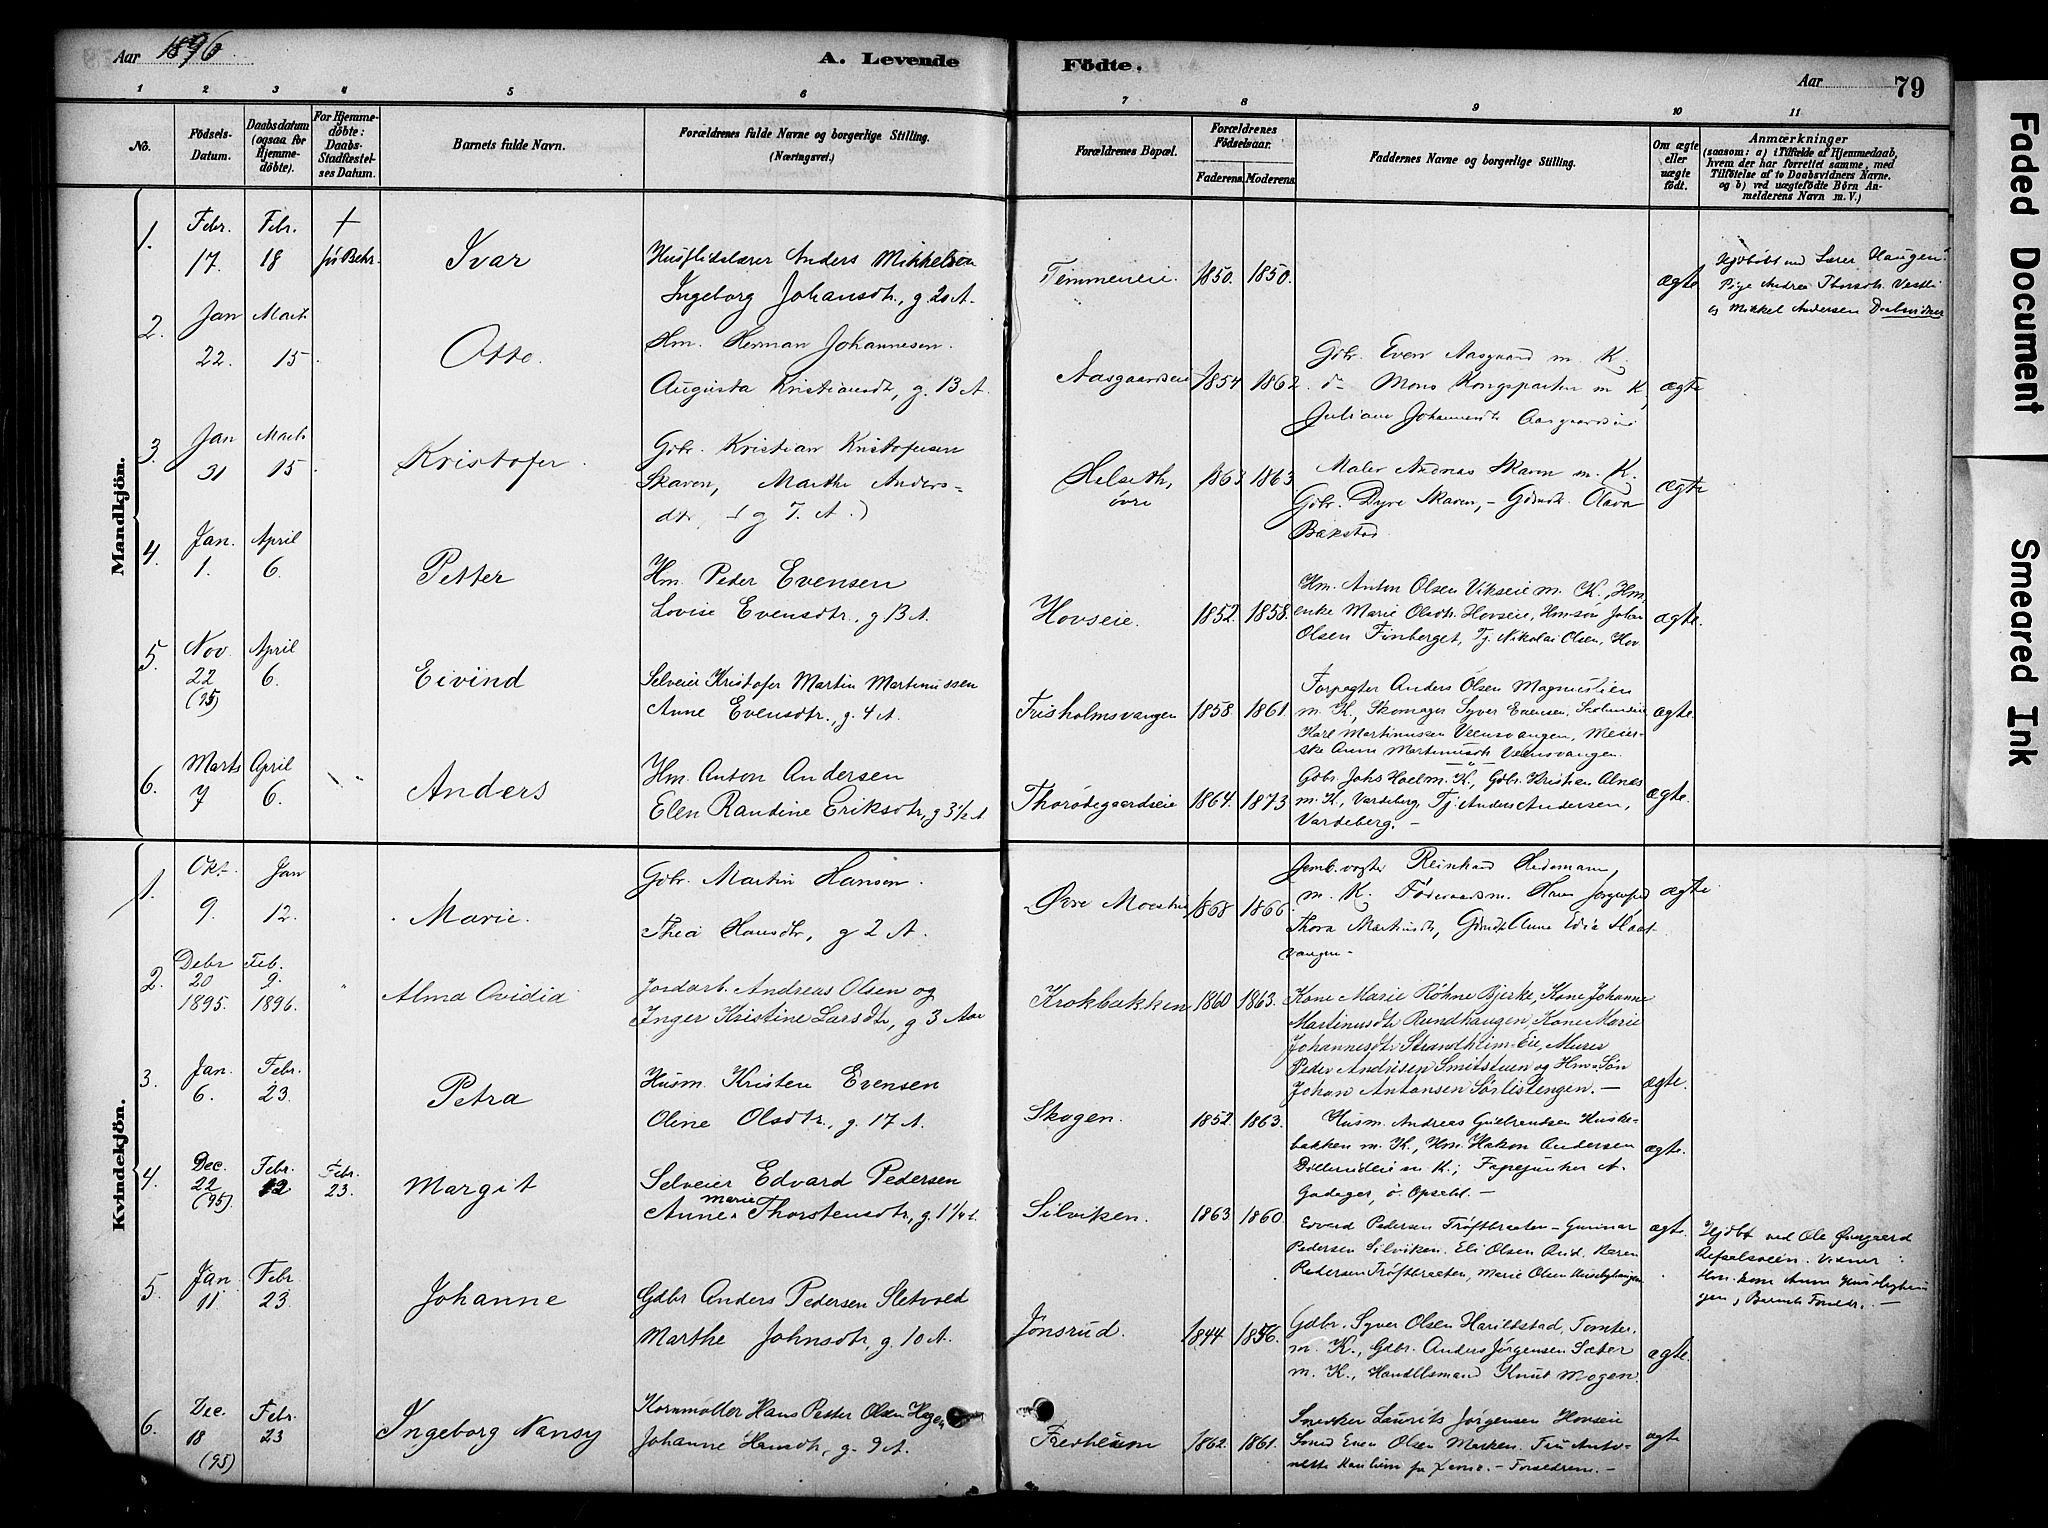 Aar 1896
A. Levende
Födte.
Aar
79
1 2 3 4 5 6 7 8 9 10 11
No.
Födsels-Datum.
Daabsdatum (ogsaa for Hjemmedöbte).
For Hjemmedöbte: Daabs-Stadfæstelses Datum.
Barnets fulde Navn.
Forældrenes fulde Navne og borgerlige Stilling.
(Næringsvei.)
Forældrenes Bopæl.
Forældrenes Födselsaar.
Faderens. Moderens.
Faddernes Navne og borgerlige Stilling.
Om ægte eller uægte födt.
Anmærkninger
(saasom: a) i Tilfælde af Hjemmedaab, hvem der har forrettet samme, med Tilföielse af to Daabsvidners Navne. og b) ved uægtefödte Börn Anmelderens Navn m. V.)
Mandkjön.
1. Febr. 17. Febr. 18 †
Ivar
Anders Mikkelsen
Ingeborg Johansdtr., g. 20 A.
1850. 1850.
ægte
Mikkel Andersen
2. Jan 22. Marts 15
Otto
Hm. Herman Johannesen
Augusta Kristiansdt, g. 13 A.
Aasgaardseie 1854 1862.
Gbr. Even Aasgaard m. K.
ægte
3. Jan 31 Marts 15
Kristofer
Gbr. Kristian Kristofersen
Skaven, Marthe Anders-
dtr
Helseth, övre 1863 1863
Maler Andreas Skaven m. K.
Gbr. Dyre Skaven, Olava
Bakstad
ægte
4. Jan. 1. April 6.
Petter
Hm. Peder Evensen
Lovise Evensdtr., g 13 A.
Hovseie. 1852. 1858.
Hm. Anton Olsen Vikseie m. K., Hm.
enke Marie Olsdtr. Hovseie, Hmsøn Johan
Olsen Finberget, Tj. Nikolai Olsen, Hov
ægte.
5. Nov. 22 (95) April 6.
Eivind
Selveier Kristofer Martin Martinussen
Anne Evensdtr., g. 4 A.
Frisholmsvangen 1858. 1861.
Forpagter Anders Olsen
m. K., Skomager Syver Evensen,
Karl Martinussen Veensvangen, Meier-
ske Anne Martinusdt. Veensvangen.
ægte.
6. Marts 7 April 6.
Anders
Hm. Anton Andersen
Elen Randine Eriksdtr., g 3½ A
Thorödegaardseie 1864. 1873
Gdbr. Johs Hoel m. K., Gdbr. Kristian Alnæs
m. K., Vardeberg, Tj. Anders Andersen,
Vardeberg. -
ægte.
Kvindekjön.
1. Okt. 9. Jan 12.
Marie.
Gbr. Martin Hansen.
Thea Hansdtr, g 2 A.
Övre 1868 1866.
Reinhard
m. K.
Thora Martinsdt,
vangen-
ægte
2. Debr 20 1895. Feb. 9. 1896.
Alma Ovidia
Jordarb. Andreas Olsen og
Inger Kristine Larsdtr, g 3 Aar
Krokbakken 1860 1863.
Kone Marie Röhne Bjerke, Kone Johanne
Martinusdtr Rundhaugen, Kone Marie
Johannesdtr Strandheim-Eie, Murer
Peder Andrisen Smitstuen og Hm.-Sön
Johan Antonsen Sörlistengen. -
ægte.
3. Jan. 6. Febr. 23.
Petra
Husm. Kristen Evensen
Oline Olsdtr., g. 17 A.
Skogen. 1852. 1863.
Husm. Andreas Gulbrandsen Huske-
bakken m. K., Hm. Hakon Andersen
m. K.,
ægte.
4. Dec. 22 (95). Febr. 12 Febr. 23.
Margit
Selveier Edvard Pedersen
Anne Marie Thorstensdtr., g. 1¼ A.
Silviken. 1863. 1860.
Edvard Pedersen Tröftbraaten - Gunnar
Pedersen Silviken. Eli Olsen Karen
Pedersen Tröftbraaten, Marie Olsen
ægte.
Hjdbt ved Ole
5. Jan. 11 Febr. 23
Johanne
Gdbr Anders Pedersen Sletvold
Marthe Johnsdtr, g. 10 A.
Jönsrud. 1844 1856.
Gdbr. Syver Olsen Harildstad, Tomter.
m. K., Gdbr. Anders Jörgensen Sæter
m. K., Handelsmand Knut Mogen.
ægte.
6. Dec. 18 (95) Febr. 23
Ingeborg Nansy
Kornmöller Hans Petter Olsen Hagen
Johanne Hansdtr, g. 9 A.
Fredheim 1862. 1861.
Snedker Laurits Jörgensen Hovseie
Smed Even Olsen Marken.
- Forældrene. -
ægte
Faded Document
Smeared Ink